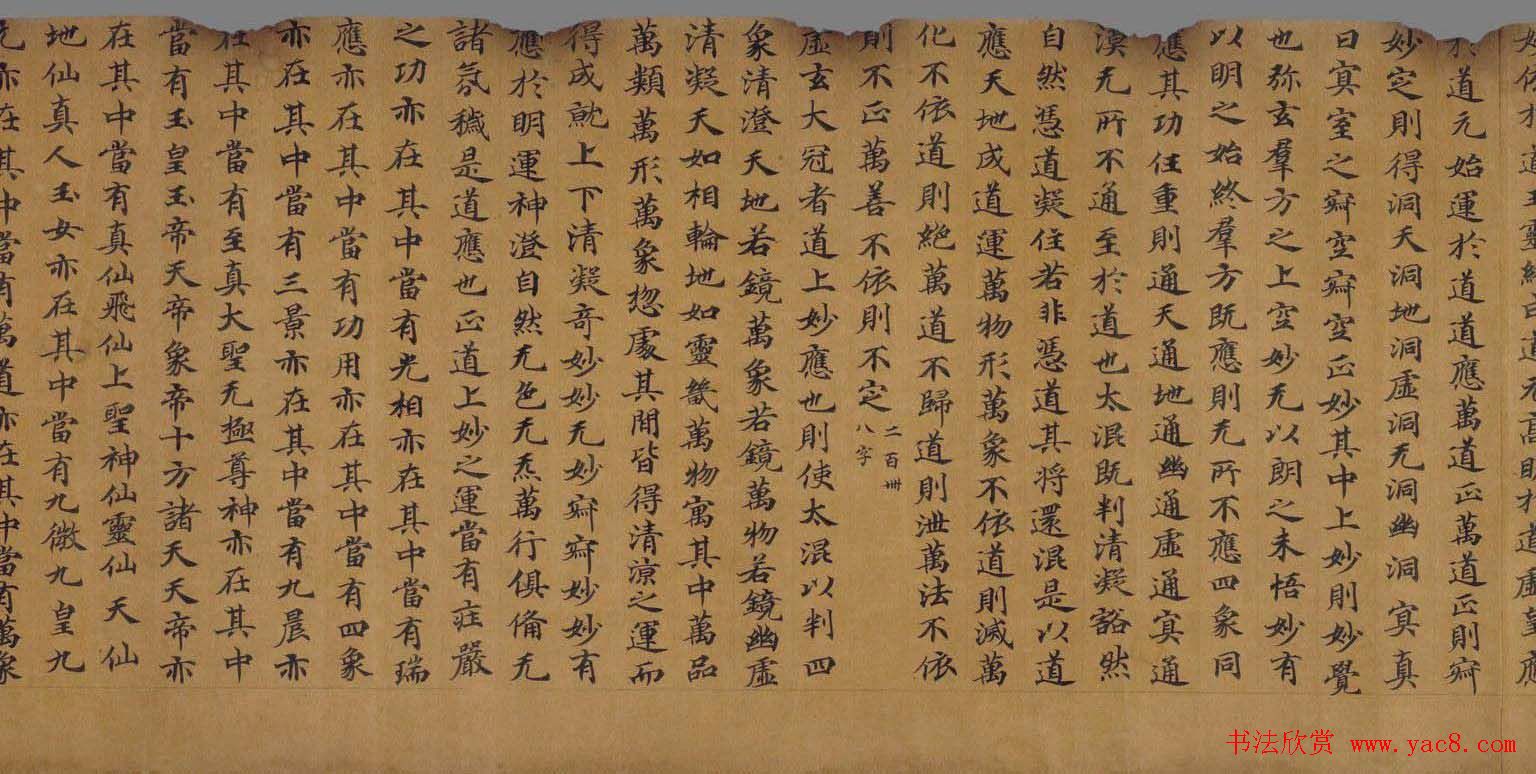 於道元始運於道道應萬道正萬道正則𡧯
妙定則得洞天洞地洞虛洞无洞幽洞㝠真
曰㝠室之𡧯空𡧯空正妙其中上妙則妙覺
也弥玄羣方之上空妙无以朗之未悟妙有
以明之始終羣方既應則无所不應四象同
應其功任重則通天通地通幽通虛通㝠通
漠无所不通至於道也太混既判清凝豁然
自然憑道凝住若非憑道其將還混是以道
應天地成道運萬物形萬象不依道則滅萬
化不依道則絕萬道不歸道則泄萬法不依
則不正萬善不依則不定 二百卌八字
虛玄大冠者道上妙應也則使太混以判四
象清澄天地若鏡萬象若鏡萬物若鏡幽虛
清凝天如相輪地如靈蟣萬物寓其中萬品
萬類萬形萬象惣處其間皆得清涼之運而
得成就上下清凝奇妙妙无妙𡧯𡧯妙妙有
應於明運神澄自然无色无炁萬行俱俻无
諸氛穢是道應也正道上妙之運當有莊嚴
之功亦在其中當有光相亦在其中當有瑞
應亦在其中當有功用亦在其中當有四象
亦在其中當有三景亦在其中當有九晨亦
在其中當有至真大聖无極尊神亦在其中
當有玉皇玉帝天帝象帝十方諸天天帝亦
在其中當有真仙飛仙上聖神仙靈仙天仙
地仙真人玉女亦在其中當有九微九皇九
亦在其中當有萬道亦在其中當有萬象
书法欣赏 www.yac8.com